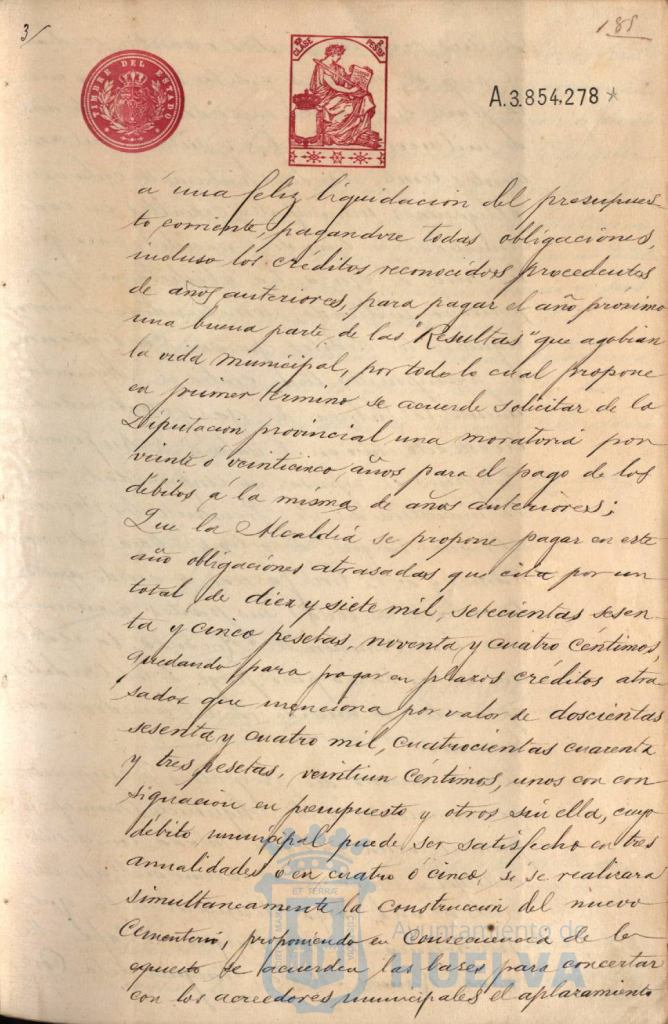 3/
185
TIMBRE DEL ESTADO
10ª CLASE
2 PESETAS
A.3.854,278 *
á una feliz liquidacion del presupues-
to corriente, pagandose todas obligaciones,
incluso los créditos reconocidos procedentes
de años anteriores, para pagar el año próximo
una buena parte de las "Resultas" que agobian
la vida municipal, por todo lo cual propone
en primer término se acuerde solicitar de la
Diputación provincial una moratoria por
veinte ó veinticinco años para el pago de los
débitos á la misma de años anteriores;
Que la Alcaldiá se propone pagar en este
año obligaciónes atrasadas que cita por un
total de diez y siete mil, setecientas sesen-
ta y cinco pesetas, noventa y cuatro céntimos,
quedando para pagar en plazos créditos atra-
sados que menciona por valor de doscientas
sesenta y cuatro mil, cuatrocientas cuarenta
y tres pesetas, veintiun céntimos, unos con con
signación en presupuesto y otros sin ella, cuyo
débito municipal puede ser satisfecho en tres
anualidades ó en cuatro ó cinco, si se realizara
simultaneamente la construcción del nuevo
Cementerio, proponiendo en consecuencia de lo
expuesto se acuerden las bases para concertar
con los acreedores municipales el aplazamiento
Ayuntamiento de
HUELVA